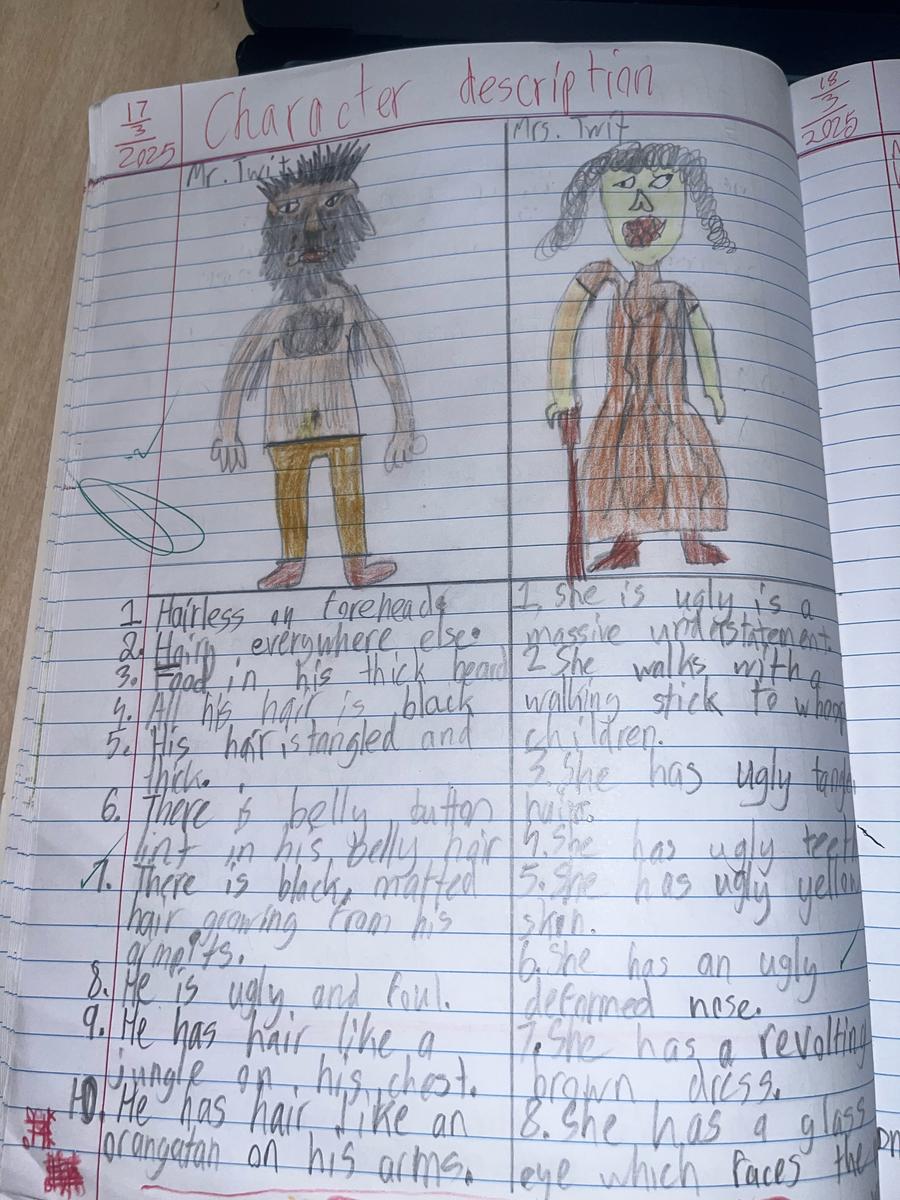 17
3
2025
Character description
18
3
2025
Mr. Twit
Mrs. Twit
1 Hairless on foreheads
2. Hairy everywhere else.
3. Food in his thick beard
4. All his hair is black
5. His hair is tangled and
thick.
6. There is belly button
lint in his belly hair
7. There is black, matted
hair growing from his
armpits.
8. He is ugly and foul.
9. He has hair like a
jungle on his chest.
10. He has hair like an
orangatan on his arms.
1. She is ugly is a
massive understatement.
2 She walks with a
walking stick to
children.
3. She has ugly
hair.
4. She has ugly teeth
5. She has ugly yellow
skin.
6. She has an ugly
deformed nose.
7. She has a revolting
brown dress.
8. She has a glass
eye which faces the